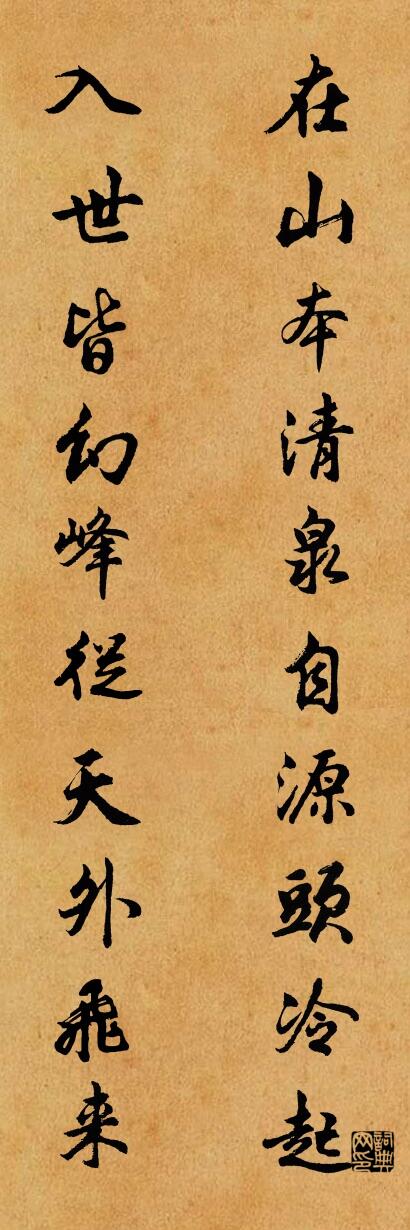 在山本清泉自源頭冷起
入世皆幻峰從天外飛来
詞典网印